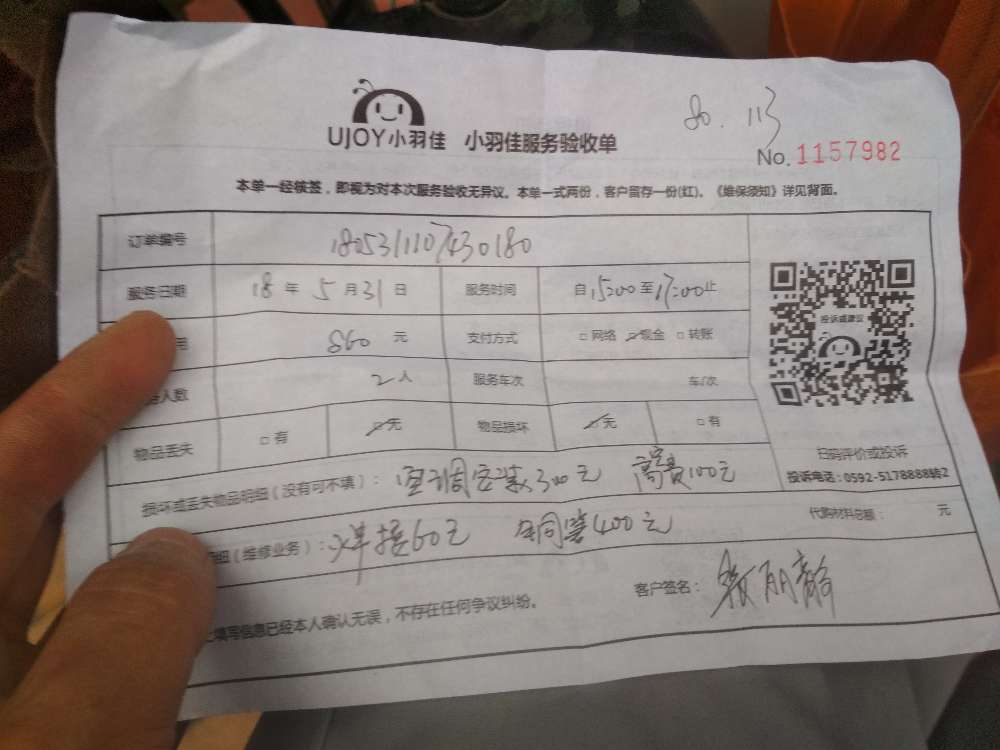 80.113
UJOY小羽佳 小羽佳服务验收单
No.1157982
本单一经核签，即视为对本次服务验收无异议。本单一式两份，客户留存一份(红)。《维保须知》详见背面。
订单编号 1805311107430180
服务日期 18年5月31日 服务时间 自15:00至17:00止
用 860元 支付方式 □网络 ☑现金 □转账
人数 2人 服务车次 车/次
物品丢失 □有 ☑无 物品损坏 ☑无 □有
投诉或建议
扫码评价或投诉
投诉电话：0592-5178888转2
损坏或丢失物品明细（没有可不填）： 空调安装300元 高空费100元
细（维修业务）： 焊接60元 铜管400元 代购材料总额： 元
填写信息已经本人确认无误，不存在任何争议纠纷。 客户签名：